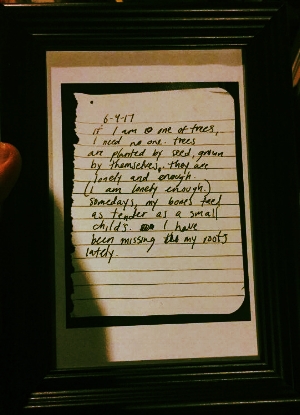 6-9-17
if I am one of trees,
I need no one. trees
are planted by seed, grown
by themselves, they are
lonely and enough.
(I am lonely enough.)
Somedays, my bones feel
as tender as a small
childs. I have
been missing my roots
lately.